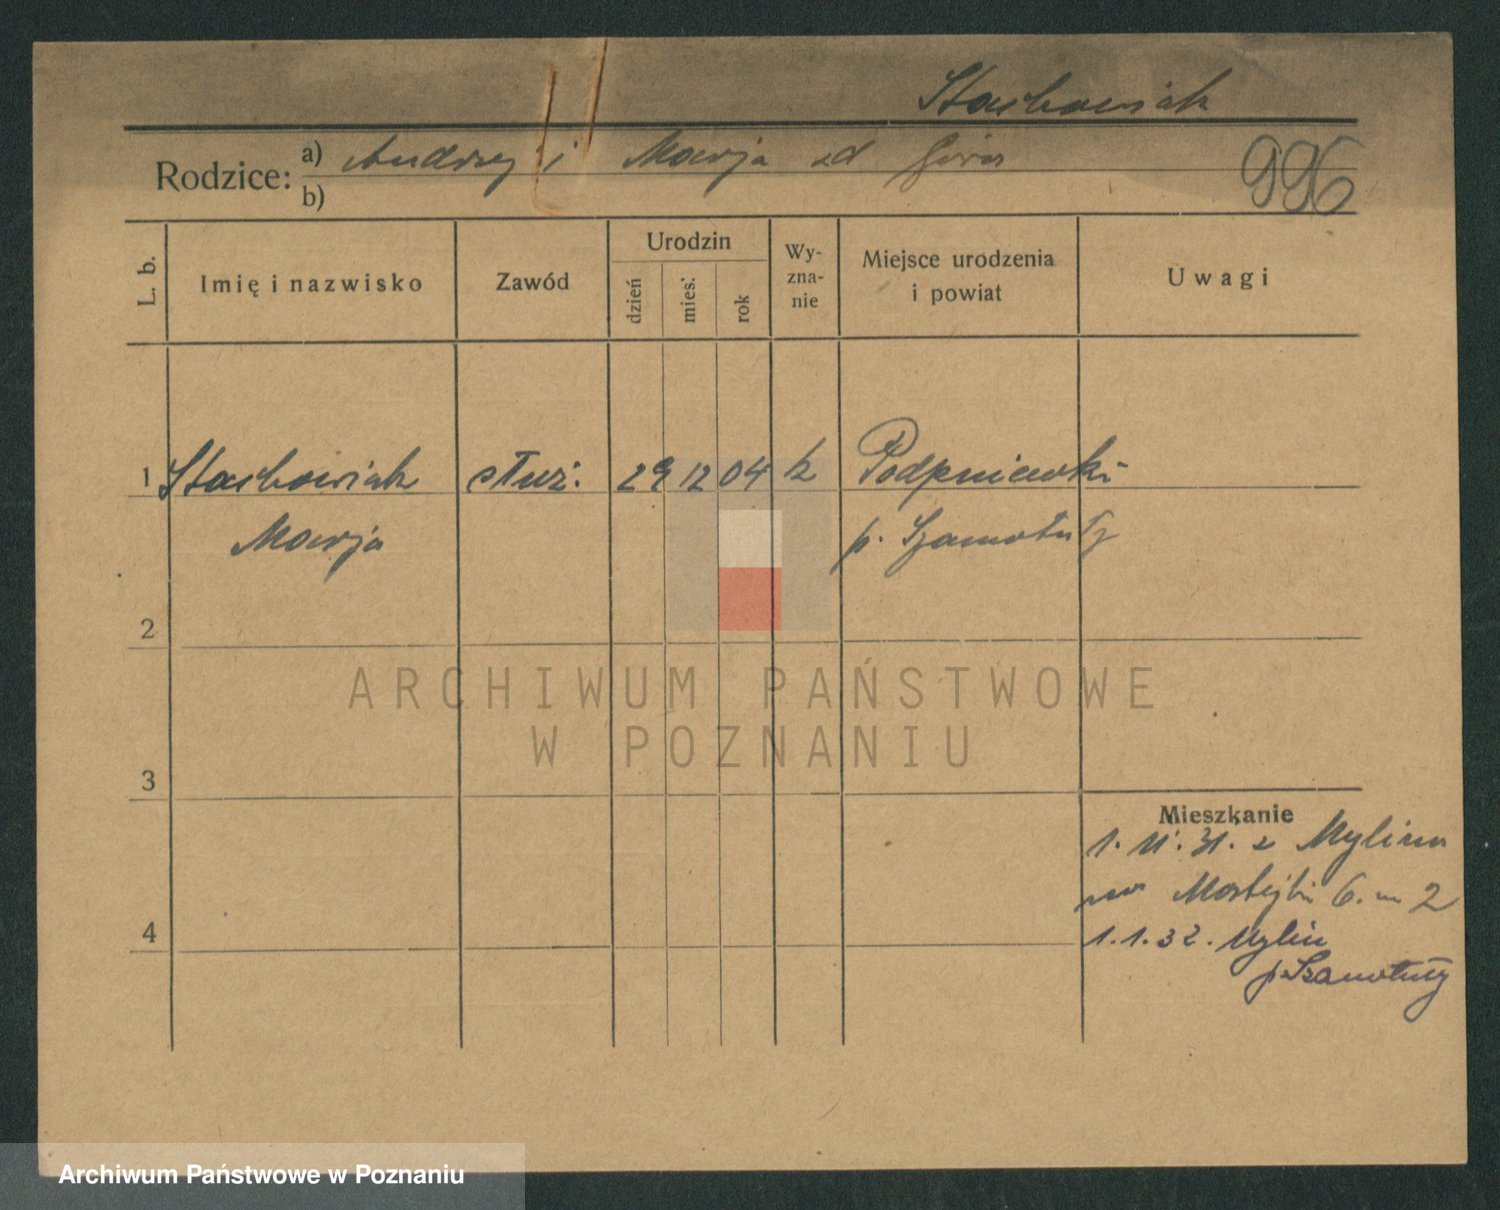 Stachowiak
Rodzice: a) Andrzej i Marja zd Góra
b)
996
L. b. Imię i nazwisko Zawód Urodzin dzień mies. rok Wyznanie Miejsce urodzenia i powiat Uwagi
1 Stachowiak służ. 29 12 04 k Podpniewki
Marja p. Szamotuły
2
3
Mieszkanie
1. 11. 31. z Mylina
na 6. m 2
4
1.1.32. Mylin
p. Szamotuły
ARCHIWUM PAŃSTWOWE
W POZNANIU
Archiwum Państwowe w Poznaniu